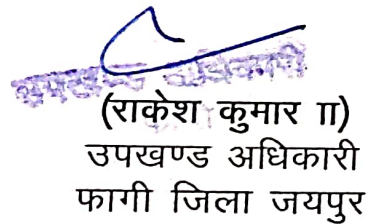 उपखण्ड अधिकारी
(राकेश कुमार II)
उपखण्ड अधिकारी
फागी जिला जयपुर